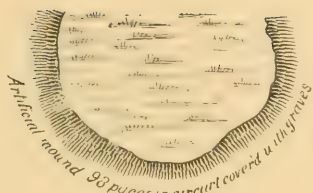 Artificial mound 93 paces in circuit cover'd with graves